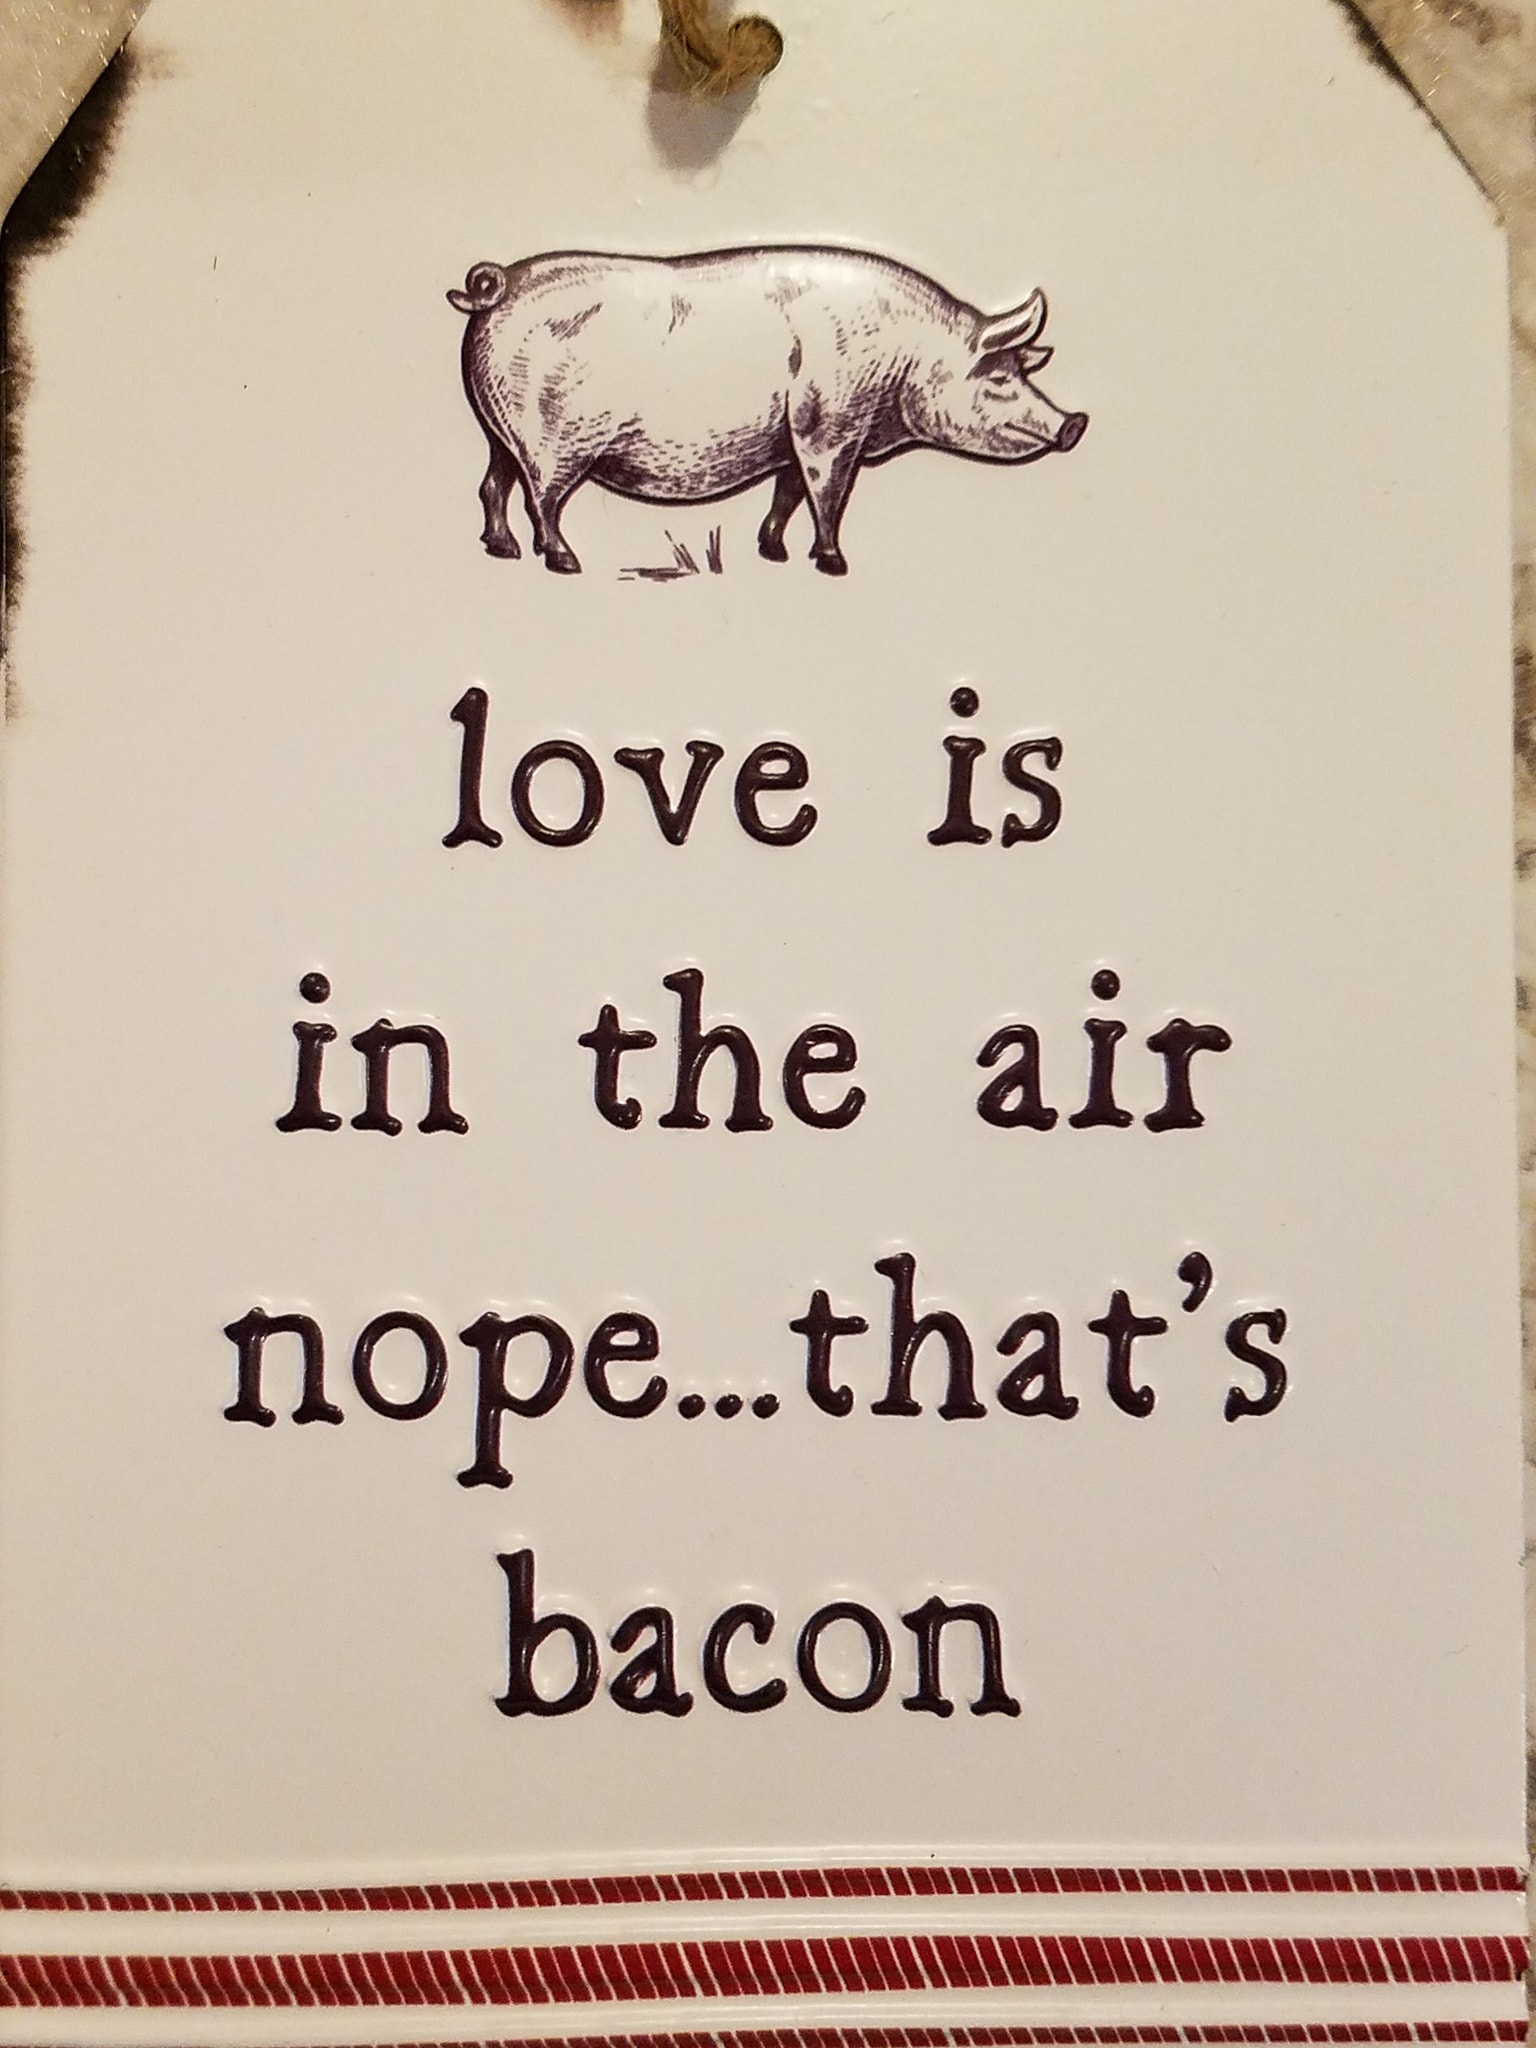 love is
in the air
nope...that's
bacon